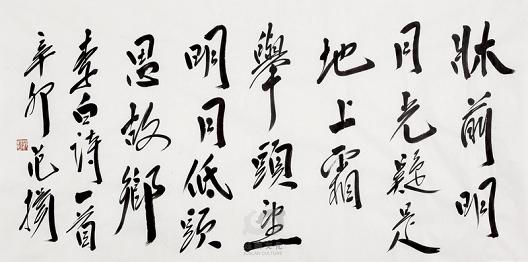 牀前明
月光疑是
地上霜
舉頭望
明月低頭
思故鄉
李白诗一首
辛卯 范